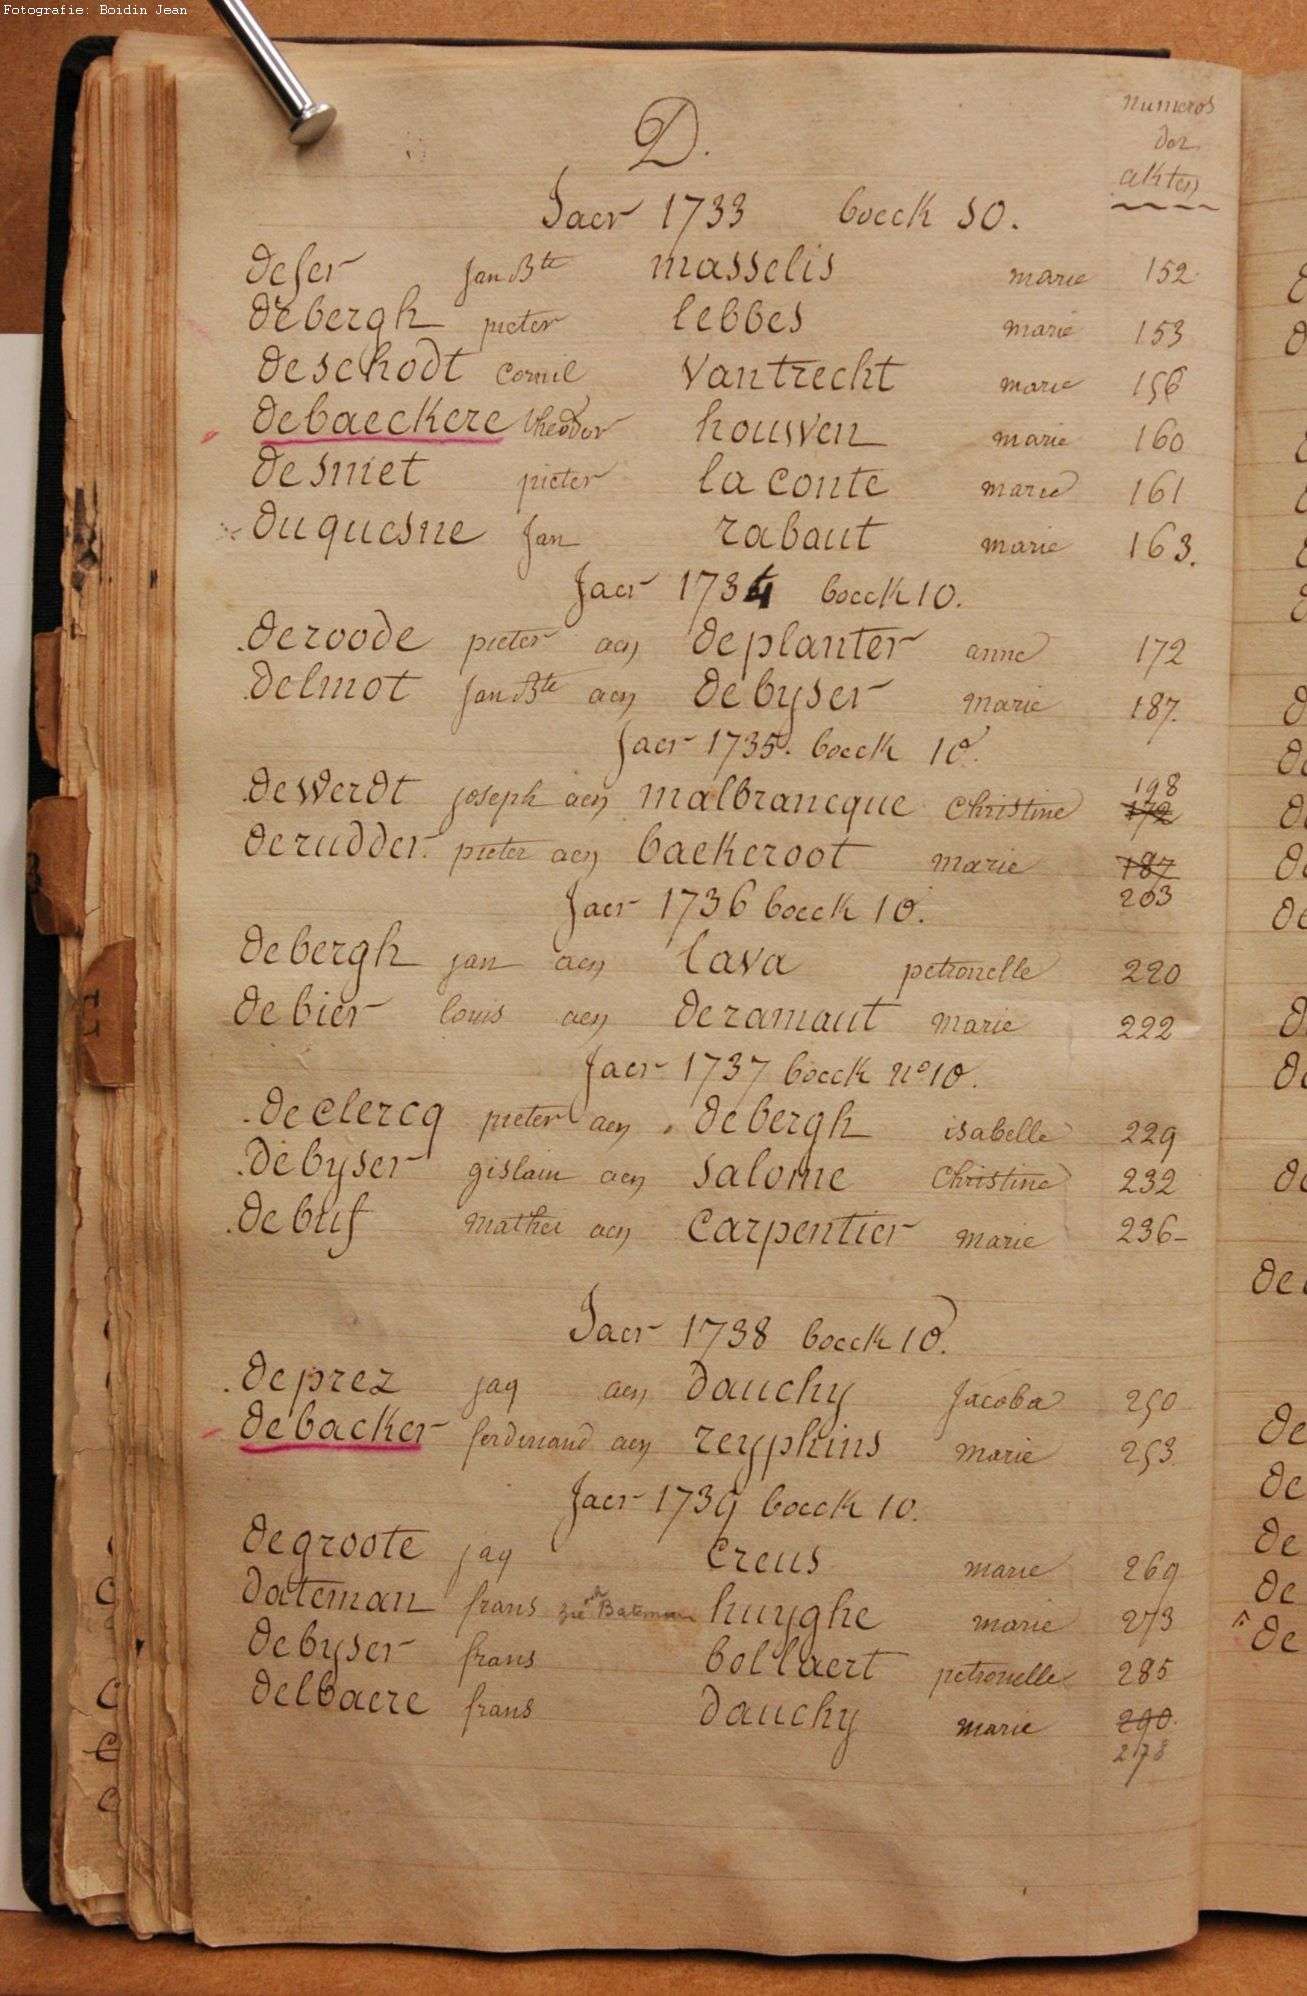 Fotografie: Boidin Jean
numeros
der
akten
D.
Jaer 1733 boeck 10.
defer jan Bte masselis marie 152
debergh pieter lebbes marie 153
deschodt cornil vantrecht marie 156
debaeckere theodor houwen marie 160
desmet pieter la conte marie 161
duquesne jan rabaut marie 163.
Jaer 1734 boeck 10.
deroode pieter aen deplanter anne 172
delmot jan Bte aen debyser marie 187.
Jaer 1735. boeck 10.
198
dewerdt joseph aen malbrancque christine 172
derudder pieter aen baekeroot marie 187
203
Jaer 1736 boeck 10.
debergh jan aen lava petronelle 220
debier louis aen deramaut marie 222
Jaer 1737 boeck no 10.
declercq pieter aen debergh isabelle 229
debyser gislain aen salome christine 232
debuf mathei aen carpentier marie 236-
Jaer 1738 boeck 10.
deprez jaq aen dauchy jacoba 250
debacker ferdinand aen reyphins marie 253.
Jaer 1739 boeck 10.
degroote jaq creus marie 269
dateman frans zie ook Bateman huyghe marie 273
debyser frans bollaert petronelle 285
delbaere frans dauchy marie 290.
278